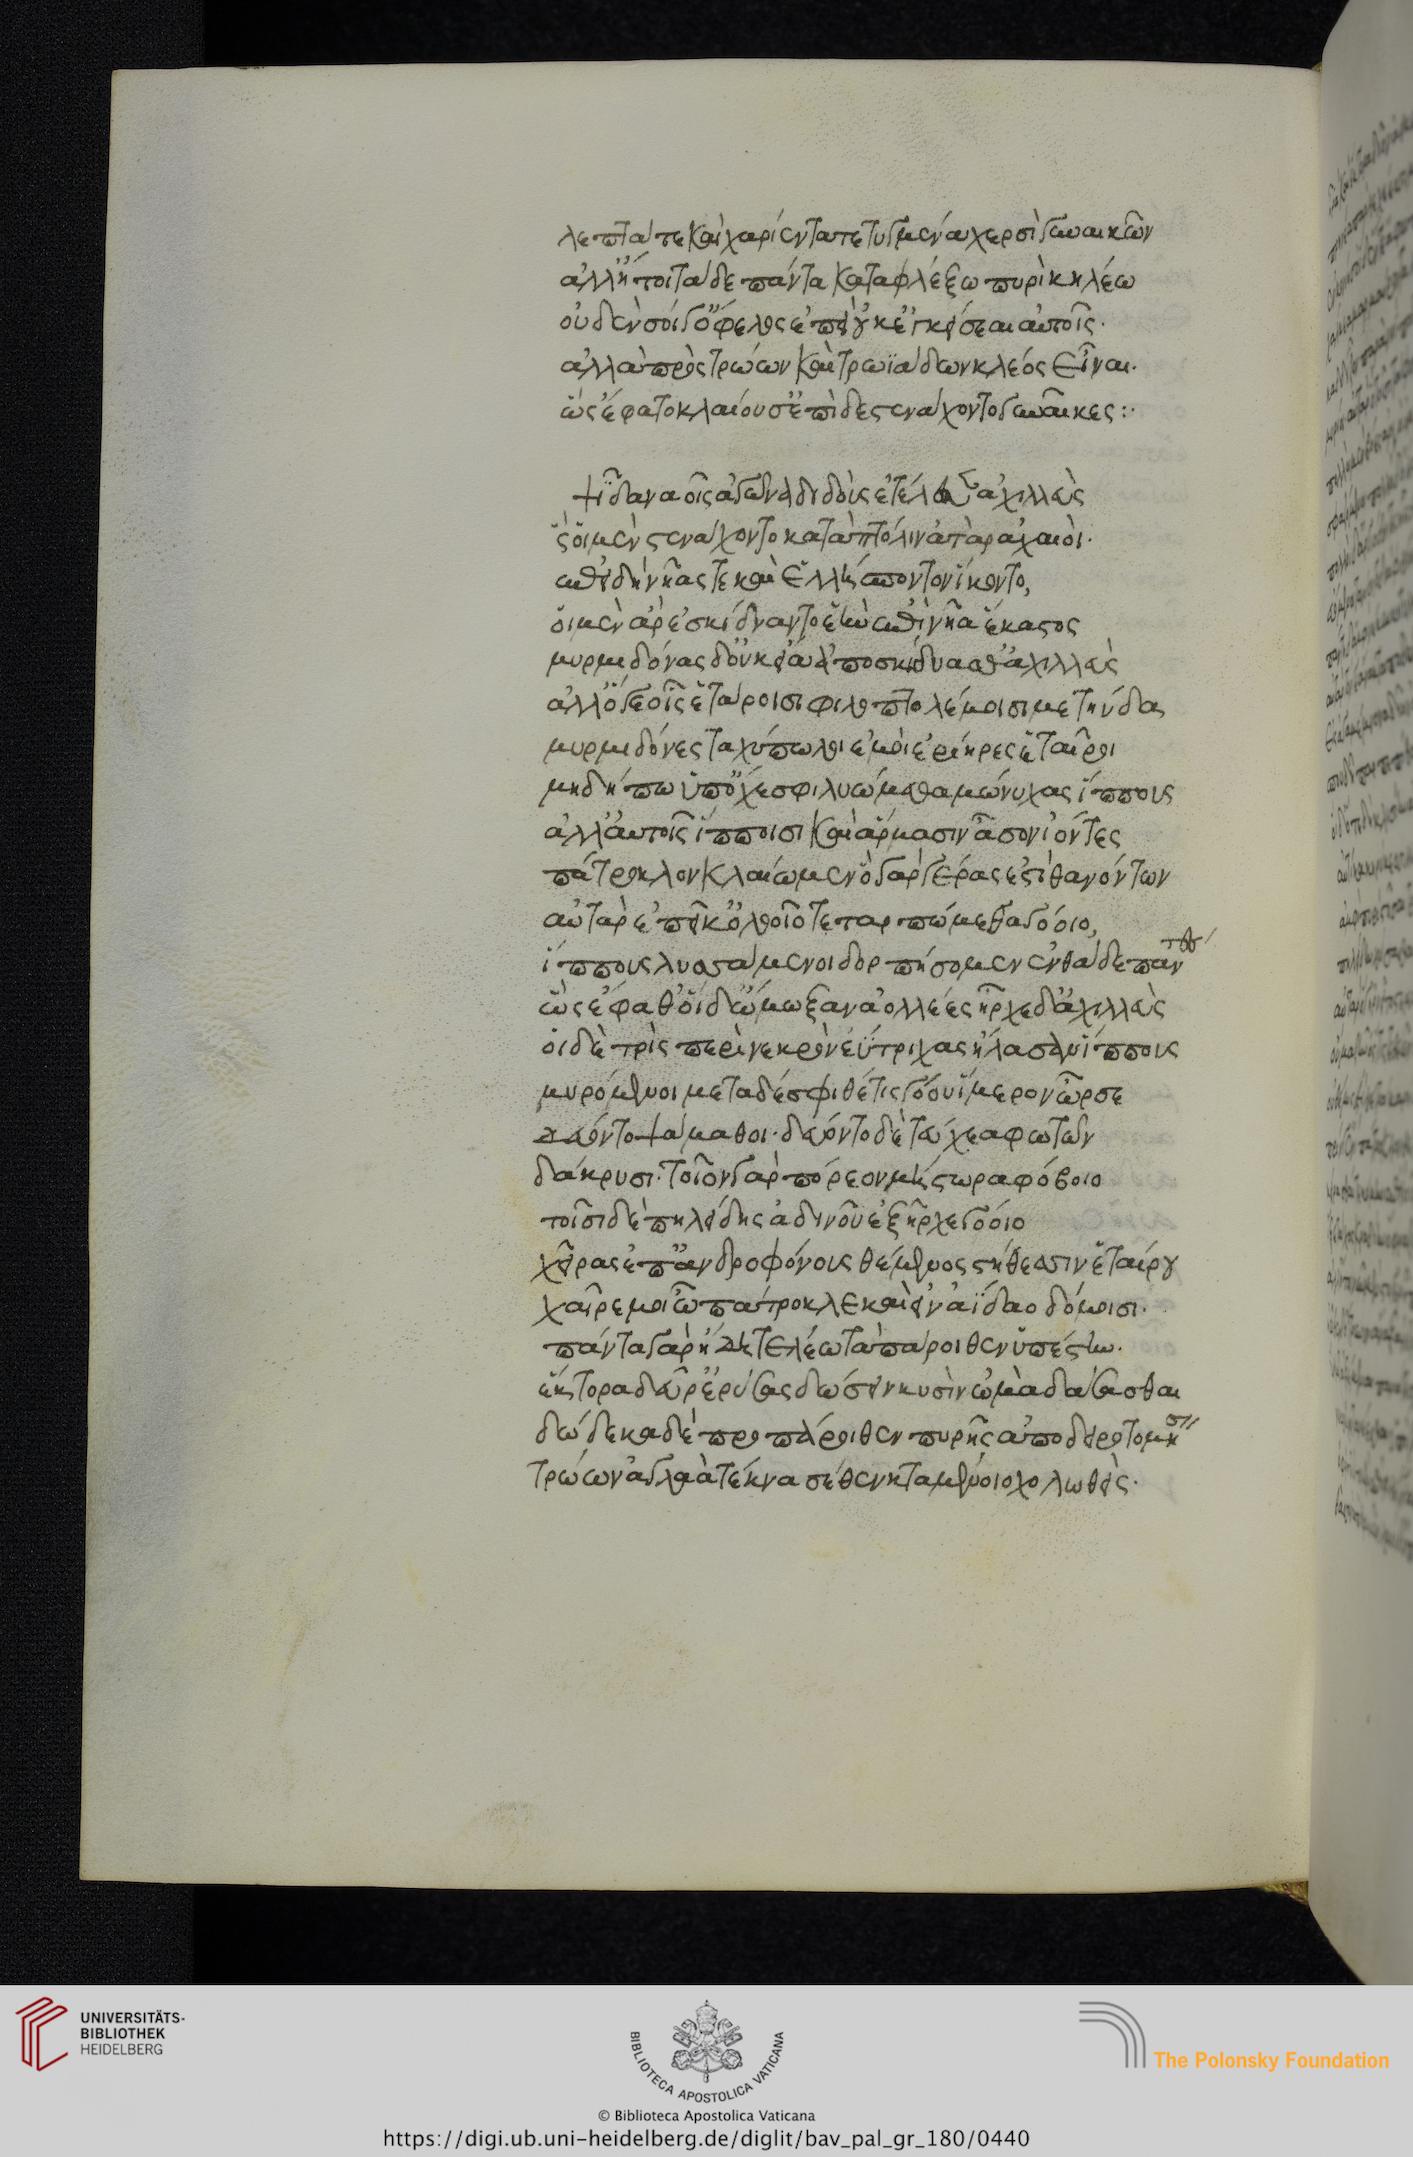 λεπτά τε καὶ χαρίεντα τετυγμένα χερσὶ γυναικῶν
ἀλλ' ἤτοι τάδε πάντα καταφλέξω πυρὶ κηλέω
οὐδὲν σοί γ' ὄφελος ἐπεὶ οὐκ ἐγκείσεαι αὐτοῖς·
ἀλλὰ πρὸς τρώων καὶ τρωϊάδων κλέος εἶναι·
ὣς ἔφατο κλαίουσ' ἐπὶ δὲ στενάχοντο γυναῖκες:·
Ψῖ δαναοῖς ἀγῶνα διδοὺς ἐτέλεσσεν ἀχιλλεὺς
ὣς οἱ μὲν στενάχοντο κατὰ πτόλιν ἀτὰρ ἀχαιοὶ·
ἐπειδὴ νῆάς τε καὶ ἑλλήσποντον ἵκοντο,
οἱ μὲν ἄρ' ἐσκίδναντο ἑὴν ἐπὶ νῆα ἕκαστος
μυρμιδόνας δ' οὐκ εἴα ἀποσκίδνασθ' ἀχιλλεὺς
ἀλλ' ὅγε οἷς ἑτάροισι φιλοπτολέμοισι μετηύδα
μυρμιδόνες ταχύπωλοι ἐμοὶ ἐρίηρες ἑταῖροι
μὴ δή πω ὑπ' ὄχεσφι λυώμεθα μώνυχας ἵππους
ἀλλ' αὐτοῖς ἵπποισι καὶ ἅρμασιν ἆσσον ἰόντες
πάτροκλον κλαίωμεν ὃ γὰρ γέρας ἐστὶ θανόντων
αὐτὰρ ἐπεί κ' ὀλοοῖο τεταρπώμεθα γόοιο,
ἵππους λυσσάμενοι δορπήσομεν ἐνθάδε πάντες
ὣς ἔφαθ' οἱ δ' ᾤμωξαν ἀολλέες ἦρχε δ' ἀχιλλεὺς
οἱ δὲ τρὶς περὶ νεκρὸν ἐύτριχας ἤλασαν ἵππους
μυρόμενοι μετὰ δέ σφι θέτις γόου ἵμερον ὦρσε
δεύοντο ψάμαθοι· δεύοντο δὲ τεύχεα φωτῶν
δάκρυσι· τοῖον γὰρ πόθεον μήστωρα φόβοιο
τοῖσι δὲ πηλείδης ἁδινοῦ ἐξῆρχε γόοιο
χεῖρας ἐπ' ἀνδροφόνους θέμενος στήθεσσιν ἑταίρου
χαῖρέ μοι ὦ πάτροκλε καὶ εἰν ἀΐδαο δόμοισι·
πάντα γὰρ ἤδη τελέω τὰ πάροιθεν ὑπέστην·
ἕκτορα δεῦρ' ἐρύσας δώσειν κυσὶν ὠμὰ δάσασθαι
δώδεκα δὲ προπάροιθεν πυρῆς ἀποδειροτομήσειν
τρώων ἀγλαὰ τέκνα σέθεν κταμένοιο χολωθεὶς·
UNIVERSITÄTS-
BIBLIOTHEK
HEIDELBERG
BIBLIOTECA APOSTOLICA VATICANA
The Polonsky Foundation
© Biblioteca Apostolica Vaticana
https://digi.ub.uni-heidelberg.de/diglit/bav_pal_gr_180/0440